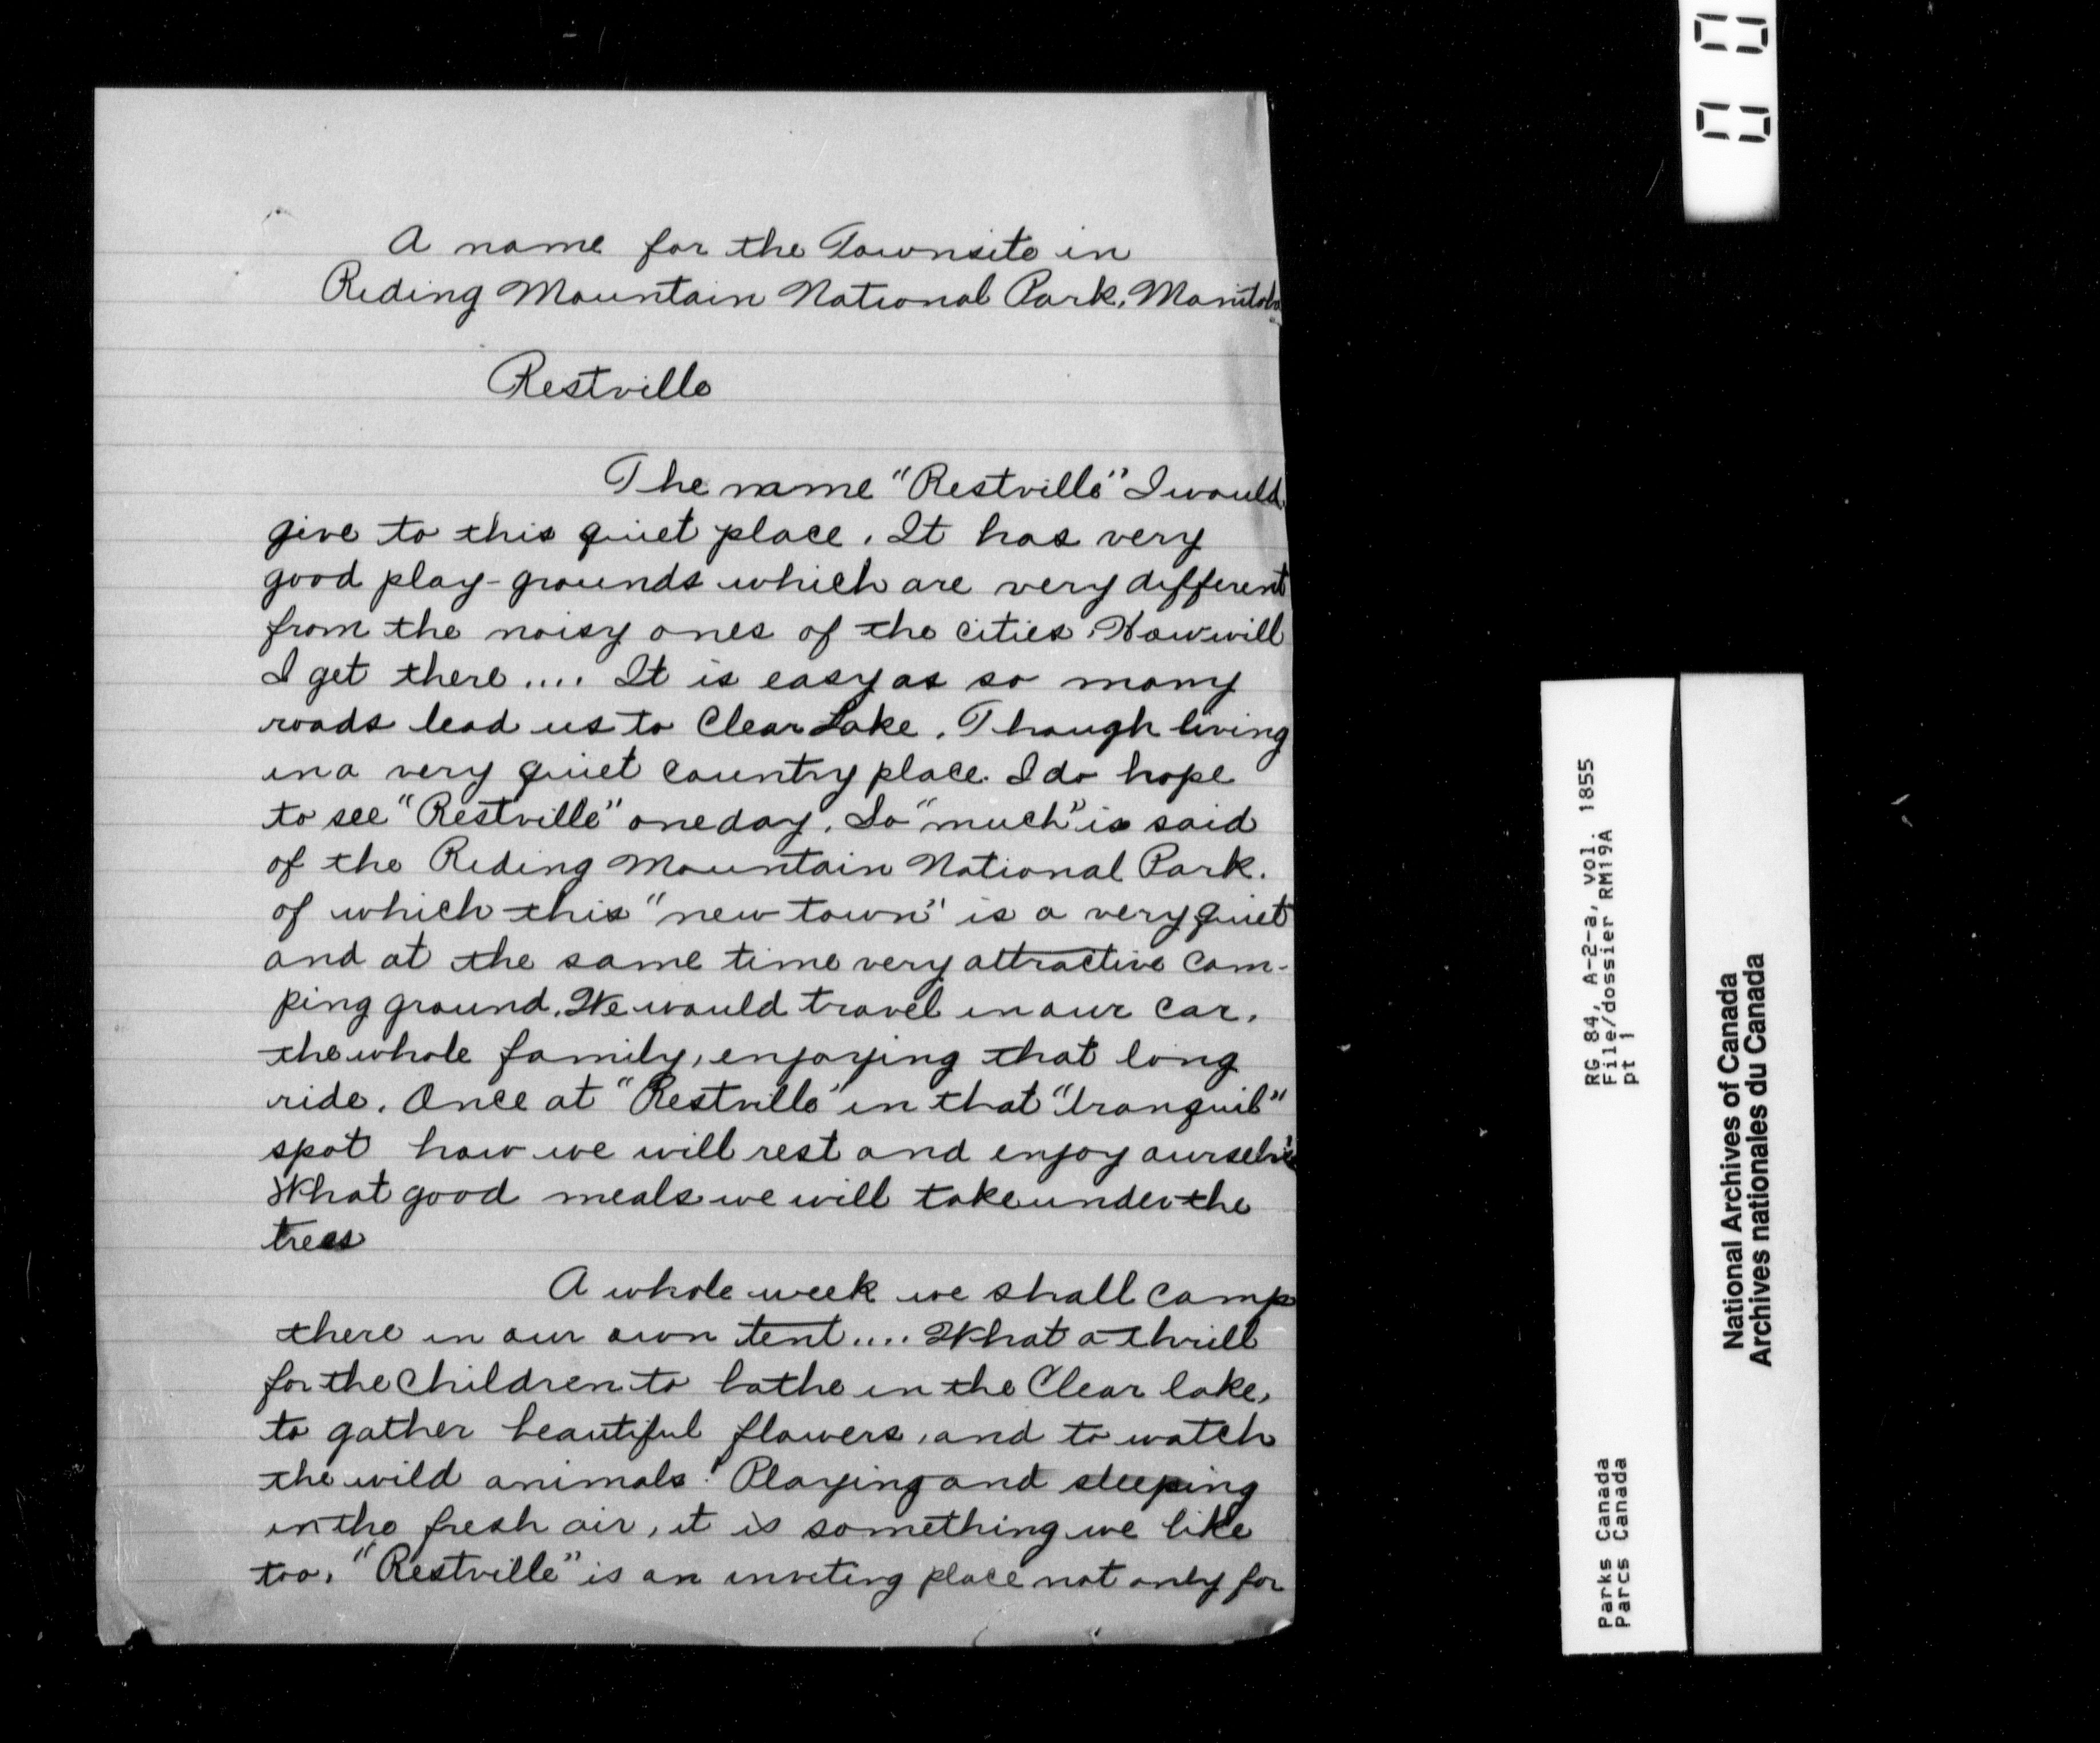 A name for the Townsite in
Riding Mountain National Park, Manitoba
Restville
The name "Restville" I would
give to this quiet place. It has very
good play-grounds which are very different
from the noisy ones of the cities. How will
I get there.... It is easy as so many
roads lead us to Clear Lake. Though living
in a very quiet country place. I do hope
to see "Restville" one day. So "much" is said
of the Riding Mountain National Park.
of which this "new town" is a very quiet
and at the same time very attractive cam-
ping ground. We would travel in our car,
the whole family, enjoying that long
ride. Once at "Restville" in that "tranquil"
spot how we will rest and enjoy ourselves
What good meals we will take under the
trees
A whole week we shall camp
there in our own tent.... What a thrill
for the children to bathe in the Clear lake,
to gather beautiful flowers, and to watch
the wild animals! Playing and sleeping
in the fresh air, it is something we like
too. "Restville" is an inviting place not only for
RG 84, A-2-a, vol. 1855
File/dossier RM19A
pt 1
Parks Canada
Parcs Canada
National Archives of Canada
Archives nationales du Canada